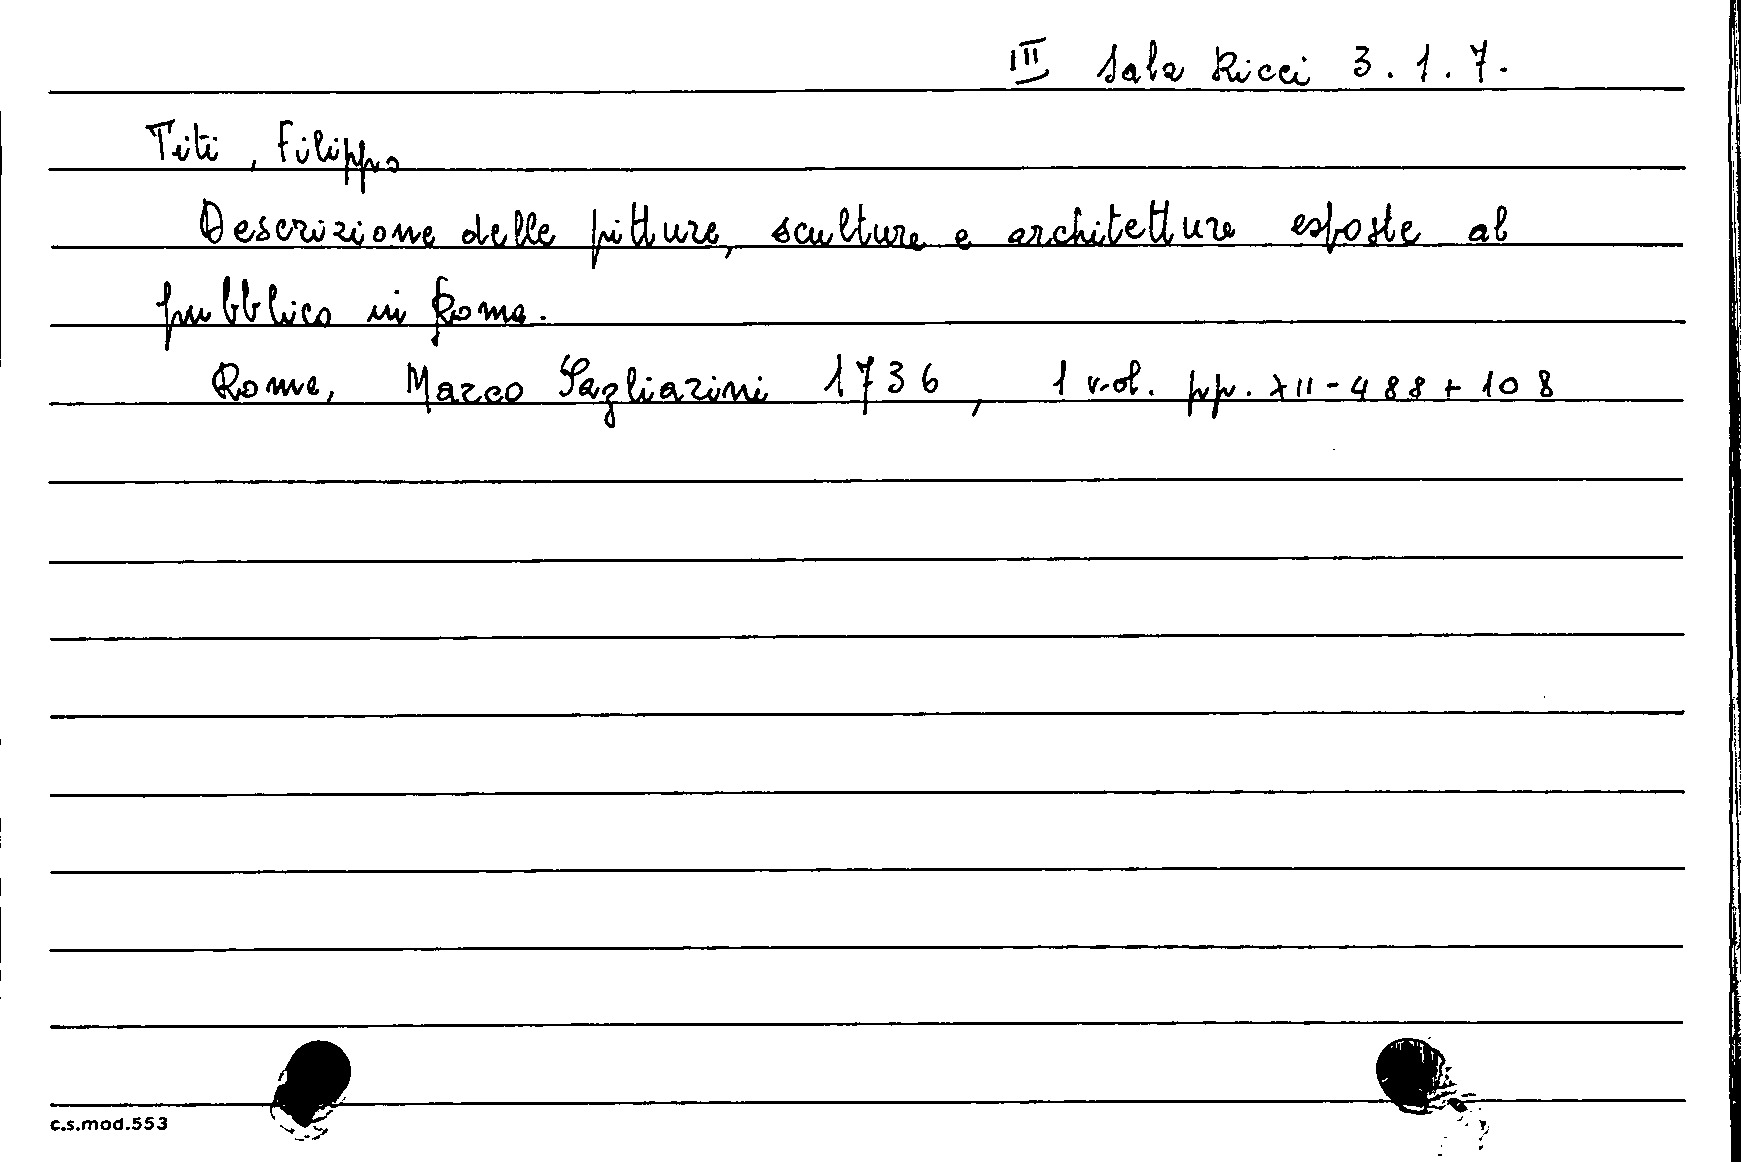 III Sala Ricci 3.1.7.
Titi, Filippo
Descrizione delle pitture, sculture e architetture esposte al
pubblico in Roma.
Roma, Marco Pagliarini 1736, 1 vol. pp. XII-488+108
c.s.mod.553